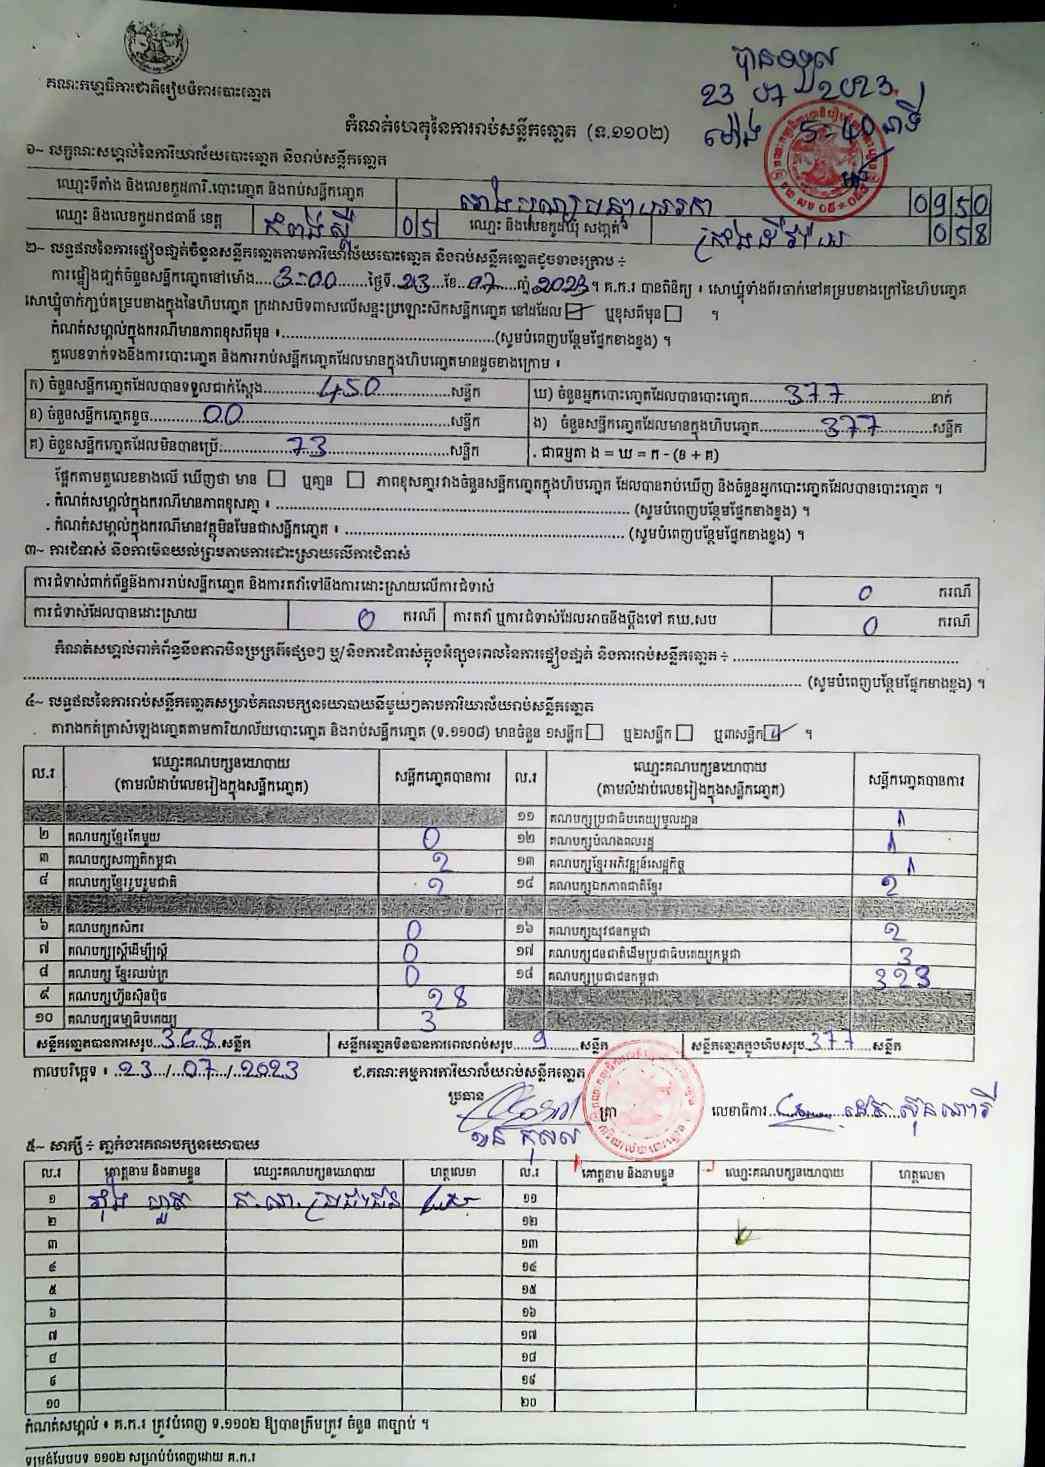 គណៈកម្មាធិការជាតិរៀបចំការបោះឆ្នោត
បានទទួល
23 07 2023
ម៉ោង 5-40 នាទី
កំណត់ហេតុនៃការរាប់សន្លឹកឆ្នោត (ទ.១១០២)
១~ លក្ខណៈសម្គាល់នៃការិយាល័យបោះឆ្នោត និងរាប់សន្លឹកឆ្នោត
ឈ្មោះទីតាំង និងលេខកូដការិ.បោះឆ្នោត និងរាប់សន្លឹកឆ្នោត 0950
ឈ្មោះ និងលេខកូដរាជធានី ខេត្ត កំពង់ស្ពឺ 05 ឈ្មោះ និងលេខកូដឃុំ សង្កាត់ 058
២~ លទ្ធផលនៃការផ្ទៀងផ្ទាត់ចំនួនសន្លឹកឆ្នោតតាមការិយាល័យបោះឆ្នោត និងរាប់សន្លឹកឆ្នោតដូចខាងក្រោម ÷
ការផ្ទៀងផ្ទាត់ចំនួនសន្លឹកឆ្នោតនៅម៉ោង 3-00 ថ្ងៃទី 23 ខែ 07 ឆ្នាំ 2023 ។ គ.ក.រ បានពិនិត្យ ៖ សោឃ្លុំទាំងពីរចាក់នៅគម្របខាងក្រៅនៃហិបឆ្នោត
សោឃ្លុំចាក់ភ្ជាប់គម្របខាងក្នុងនៃហិបឆ្នោត ក្រដាសបិទពាសលើសន្ទះប្រឡោះស៊កសន្លឹកឆ្នោត នៅដដែល ☑ ឬខុសពីមុន ☐ ។
កំណត់សម្គាល់ក្នុងករណីមានភាពខុសពីមុន ៖ (សូមបំពេញបន្ថែមផ្នែកខាងខ្នង) ។
តួលេខទាក់ទងនឹងការបោះឆ្នោត និងការរាប់សន្លឹកឆ្នោតដែលមានក្នុងហិបឆ្នោតមានដូចខាងក្រោម ៖
ក) ចំនួនសន្លឹកឆ្នោតដែលបានទទួលជាក់ស្តែង 450 សន្លឹក ឃ) ចំនួនអ្នកបោះឆ្នោតដែលបានបោះឆ្នោត 377 នាក់
ខ) ចំនួនសន្លឹកឆ្នោតខូច 00 សន្លឹក ង) ចំនួនសន្លឹកឆ្នោតដែលមានក្នុងហិបឆ្នោត 377 សន្លឹក
គ) ចំនួនសន្លឹកឆ្នោតដែលមិនបានប្រើ 73 សន្លឹក . ជាធម្មតា ង = ឃ = ក - (ខ + គ)
ផ្អែកតាមតួលេខខាងលើ ឃើញថា មាន ☐ ឬគ្មាន ☐ ភាពខុសគ្នារវាងចំនួនសន្លឹកឆ្នោតក្នុងហិបឆ្នោត ដែលបានរាប់ឃើញ និងចំនួនអ្នកបោះឆ្នោតដែលបានបោះឆ្នោត ។
. កំណត់សម្គាល់ក្នុងករណីមានភាពខុសគ្នា ៖ (សូមបំពេញបន្ថែមផ្នែកខាងខ្នង) ។
. កំណត់សម្គាល់ក្នុងករណីមានវត្ថុមិនមែនជាសន្លឹកឆ្នោត ៖ (សូមបំពេញបន្ថែមផ្នែកខាងខ្នង) ។
៣~ ការជំទាស់ និងការមិនយល់ព្រមតាមការដោះស្រាយលើការជំទាស់
ការជំទាស់ពាក់ព័ន្ធនឹងការរាប់សន្លឹកឆ្នោត និងការតវ៉ាទៅនឹងការដោះស្រាយលើការជំទាស់ 0 ករណី
ការជំទាស់ដែលបានដោះស្រាយ 0 ករណី ការតវ៉ា ឬការជំទាស់ដែលអាចនឹងប្តឹងទៅ គឃ.សប 0 ករណី
កំណត់សម្គាល់ពាក់ព័ន្ធនឹងភាពមិនប្រក្រតីផ្សេងៗ ឬ/និងការជំទាស់ក្នុងអំឡុងពេលនៃការផ្ទៀងផ្ទាត់ និងការរាប់សន្លឹកឆ្នោត ÷
(សូមបំពេញបន្ថែមផ្នែកខាងខ្នង) ។
៤~ លទ្ធផលនៃការរាប់សន្លឹកឆ្នោតសម្រាប់គណបក្សនយោបាយនីមួយៗតាមការិយាល័យរាប់សន្លឹកឆ្នោត
តារាងកត់ត្រាសំឡេងឆ្នោតតាមការិយាល័យបោះឆ្នោត និងរាប់សន្លឹកឆ្នោត (ទ.១១០៨) មានចំនួន ១សន្លឹក ☐ ឬ២សន្លឹក ☐ ឬ៣សន្លឹក ☑ ។
ល.រ ឈ្មោះគណបក្សនយោបាយ (តាមលំដាប់លេខរៀងក្នុងសន្លឹកឆ្នោត) សន្លឹកឆ្នោតបានការ ល.រ ឈ្មោះគណបក្សនយោបាយ (តាមលំដាប់លេខរៀងក្នុងសន្លឹកឆ្នោត) សន្លឹកឆ្នោតបានការ
១១ គណបក្សប្រជាធិបតេយ្យមូលដ្ឋាន ๑
២ គណបក្សខ្មែរតែមួយ 0 ១២ គណបក្សបំណងពលរដ្ឋ ๑
៣ គណបក្សសញ្ជាតិកម្ពុជា 2 ១៣ គណបក្សខ្មែរអភិវឌ្ឍន៍សេដ្ឋកិច្ច ๑
៤ គណបក្សខ្មែររួបរួមជាតិ 2 ១៤ គណបក្សឯកភាពជាតិខ្មែរ 2
៦ គណបក្សកសិករ 0 ១៦ គណបក្សយុវជនកម្ពុជា 2
៧ គណបក្សស្ត្រីដើម្បីស្ត្រី 0 ១៧ គណបក្សជនជាតិដើមប្រជាធិបតេយ្យកម្ពុជា 3
៨ គណបក្ស ខ្មែរឈប់ក្រ 0 ១៨ គណបក្សប្រជាជនកម្ពុជា 323
៩ គណបក្សហ្វ៊ុនស៊ិនប៉ិច 28
១០ គណបក្សធម្មាធិបតេយ្យ 3
សន្លឹកឆ្នោតបានការសរុប 368 សន្លឹក សន្លឹកឆ្នោតមិនបានការពេលរាប់សរុប 9 សន្លឹក សន្លឹកឆ្នោតក្នុងហិបសរុប 377 សន្លឹក
កាលបរិច្ឆេទ ៖ 23/07/2023 ជ.គណៈកម្មការការិយាល័យរាប់សន្លឹកឆ្នោត
ប្រធាន ត្រា លេខាធិការ
៥~ សាក្សី ÷ ភ្នាក់ងារគណបក្សនយោបាយ
ល.រ គោត្តនាម និងនាមខ្លួន ឈ្មោះគណបក្សនយោបាយ ហត្ថលេខា ល.រ គោត្តនាម និងនាមខ្លួន ឈ្មោះគណបក្សនយោបាយ ហត្ថលេខា
១ ១១
២ ១២
៣ ១៣
៤ ១៤
៥ ១៥
៦ ១៦
៧ ១៧
៨ ១៨
៩ ១៩
១០ ២០
កំណត់សម្គាល់ ៖ គ.ក.រ ត្រូវបំពេញ ទ.១១០២ ឱ្យបានត្រឹមត្រូវ ចំនួន ៣ច្បាប់ ។
ទម្រង់បែបបទ ១១០២ សម្រាប់បំពេញដោយ គ.ក.រ